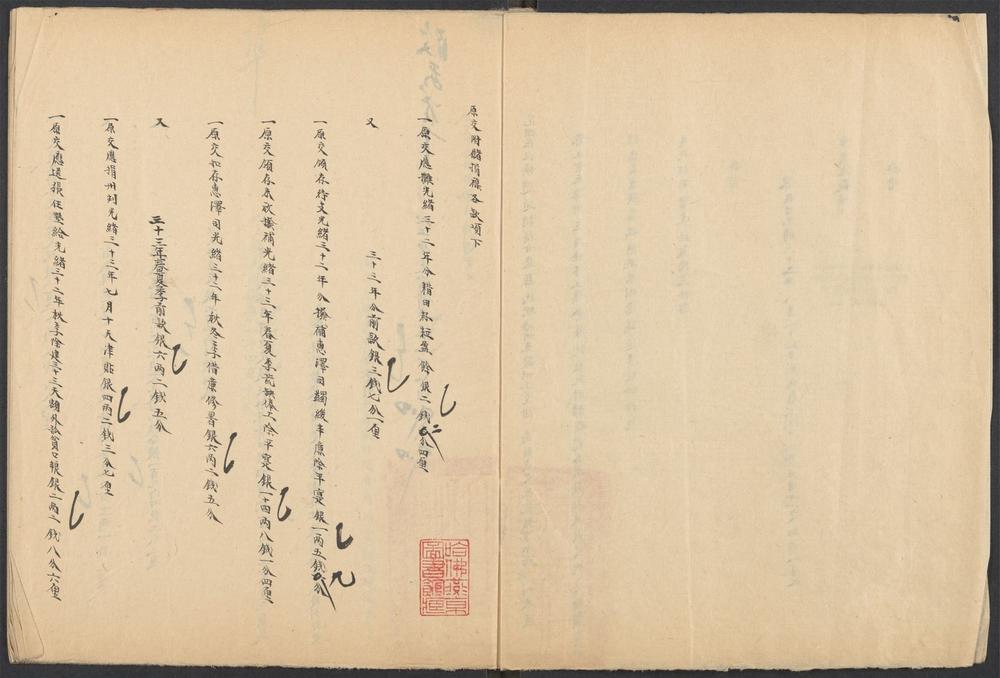 原交附儲捐廉各款項下
一原交應攤光緒三十二年分籍田米短盈餘銀二錢二分四厘
又 三十三年分前款銀三錢七分一厘
一原交領存待支光緒三十二年分攤補惠澤司蠲緩年應除平寔銀一兩五錢九分
一原交領存未放攤補光緒三十三年春夏季荒缺俸工除平寔銀一十四兩八錢一分四厘
一原交扣存惠澤司光緒三十二年秋冬季借廉修署銀六兩二錢五分
又 三十三年春夏季前款銀六兩二錢五分
一原交應捐光緒三十三年七月十天津貼銀四兩二錢三分七厘
一原交應還張任墊給光緒三十二年秋季除建三十三天額外孤貧口糧銀二兩一錢八分六厘
哈佛燕京圖書館藏